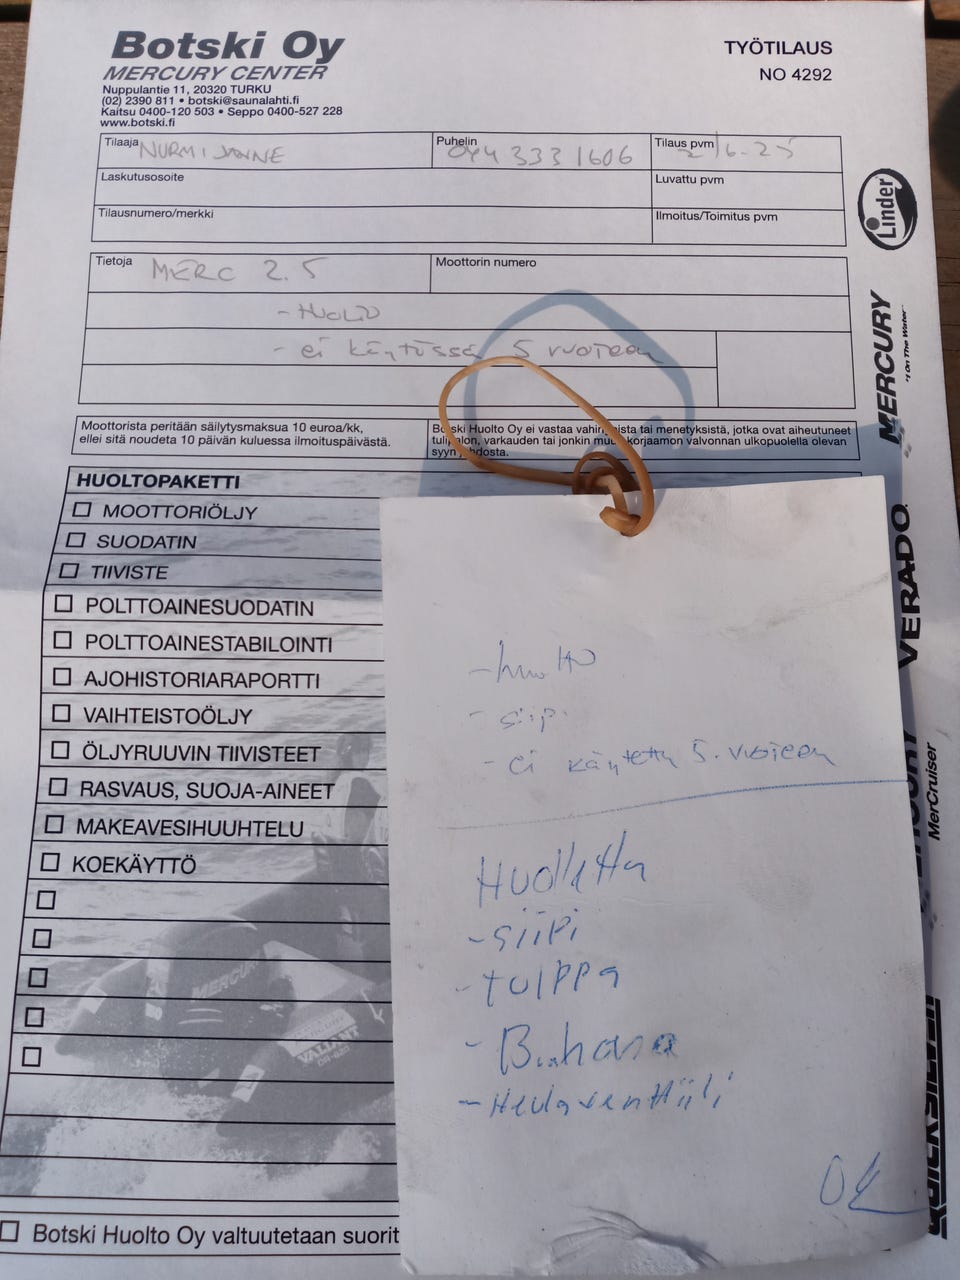 Botski Oy
MERCURY CENTER
Nuppulantie 11, 20320 TURKU
(02) 2390 811 • botski@saunalahti.fi
Kaitsu 0400-120 503 • Seppo 0400-527 228
www.botski.fi
TYÖTILAUS
NO 4292
Tilaaja NURMI JANNE
Puhelin 044 333 1606
Tilaus pvm 2/6-25
Laskutusosoite
Luvattu pvm
Tilausnumero/merkki
Ilmoitus/Toimitus pvm
Tietoja MERC 2.5
Moottorin numero
- HUOLTO
- ei käytössä 5 vuoteen
Moottorista peritään säilytysmaksua 10 euroa/kk,
ellei sitä noudeta 10 päivän kuluessa ilmoituspäivästä.
Botski Huolto Oy ei vastaa vahingoista tai menetyksistä, jotka ovat aiheutuneet
tulipalon, varkauden tai jonkin muun korjaamon valvonnan ulkopuolella olevan
syyn johdosta.
HUOLTOPAKETTI
MOOTTORIÖLJY
SUODATIN
TIIVISTE
POLTTOAINESUODATIN
POLTTOAINESTABILOINTI
AJOHISTORIARAPORTTI
VAIHTEISTOÖLJY
ÖLJYRUUVIN TIIVISTEET
RASVAUS, SUOJA-AINEET
MAKEAVESIHUUHTELU
KOEKÄYTTÖ
Botski Huolto Oy valtuutetaan suorit
- huolto
- siipi
- ei käytetty 5. vuoteen
Huollettu
- siipi
- tulppa
- B.hana
- Neulaventtiili
OK
Linder
MERCURY
"1 On The Water"
VERADO
MERCURY
MerCruiser
QUICKSILVER
MERCURY
VALIANT